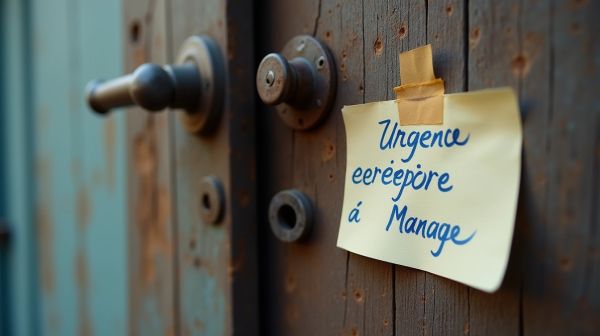 Urgence
eereépore
á Manage